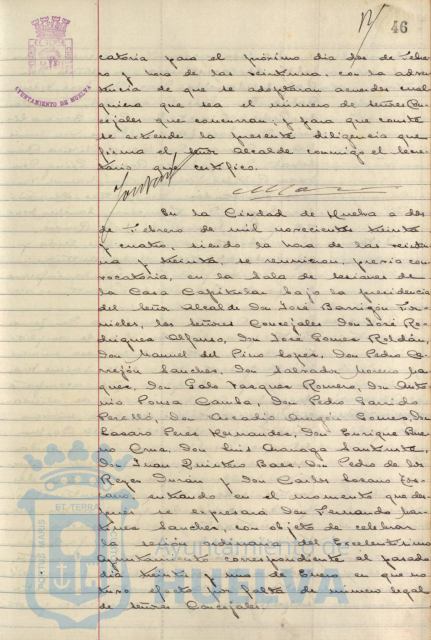 46
AYUNTAMIENTO DE HUELVA
catoria para el próximo dia dos de Febre
ro y hora de las veintiuna, con la adver
tencia de que se adoptaran acuerdos cual
quiera que sea el número de señores Con
cejales que concurran; y para que conste
se extiende la presente diligencia que
firma el señor Alcalde conmigo el Secre
tario que certifico.
En la Ciudad de Huelva a dos
de Febrero de mil novecientos treinta
y cuatro, siendo la hora de las veintiu
na y treinta, se reunieron, previa con
vocatoria, en la Sala de sesiones de
la Casa Capitular bajo la presidencia
del señor Alcalde Don José Barrigón For
nieles, los señores Concejales Don José Ro
driguez Alfonso, Don José Gomez Roldán,
Don Manuel del Pino Lopez, Don Pedro Ce
rrejón Sanchez, Don Salvador Moreno Ma
quez, Don Galo Vazquez Romero, Don Anto
nio Pousa Camba, Don Pedro Garrido
Perelló, Don Arcadio Aragón Gomez, Don
Lazaro Perez Hernandez, Don Enrique Bue
no Cruz, Don Luis
Don Juan Quintero Baez, Don Pedro de los
Reyes Durán y Don Carlos Lozano
entrando en el momento que des
pues se expresará Don Fernando Mar
tinez Sanchez, con objeto de celebrar
la sesión ordinaria del Excelentisimo
Ayuntamiento correspondiente al pasado
dia treinta y uno de Enero en que no
tuvo efecto por falta de número legal
de señores Concejales.
Ayuntamiento de
HUELVA